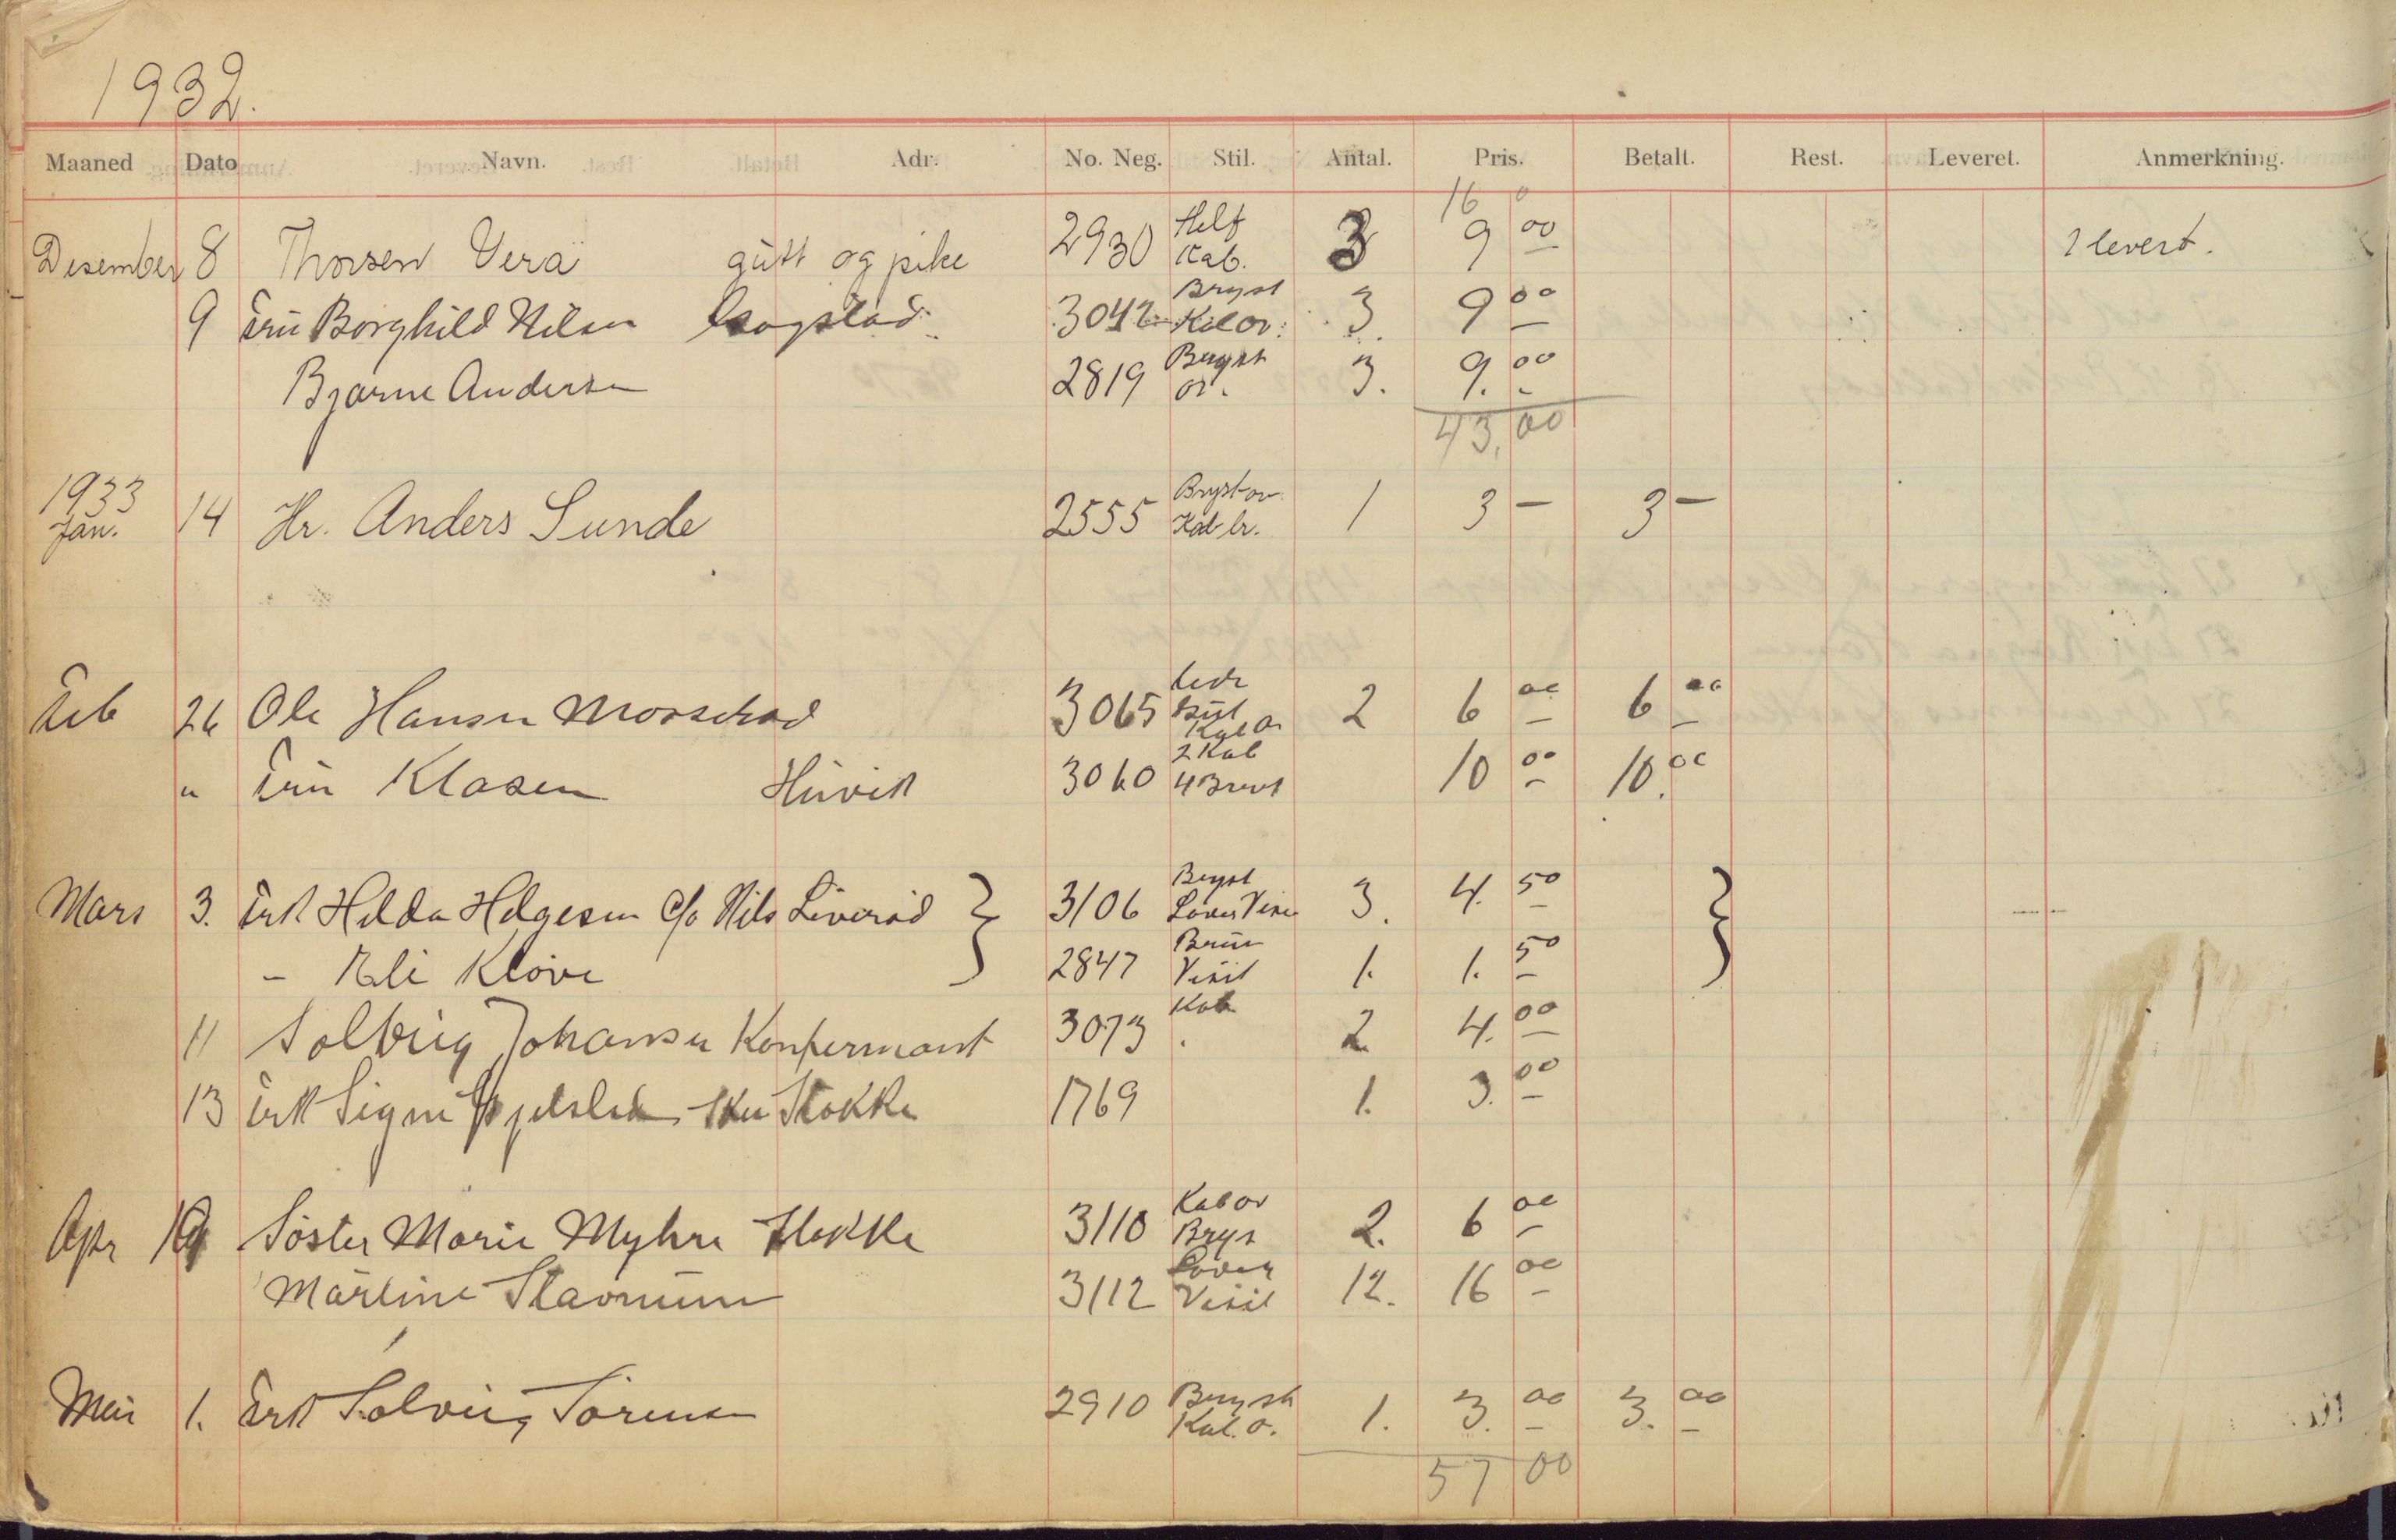 1932.
Maaned Dato Navn. Adr. No. Neg. Stil. Antal. Pris. Betalt. Rest. Leveret. Anmerkning.
16 0
Desember 8 Thorsen Vera gutt og pike 2930 Helf Kab. 3 9 00 1 levert.
9 Fru Borghild Nilsen 3042 Bryst 3. 9 00
Bjarne Andersen 2819 Bryst or. 3. 9. 00
43,00
1933
Jan. 14 Hr. Anders Sunde 2555 Bryst or. Kab br. 1 3 — 3 —
Feb 26 Ole Hansen 3065 Kab or 2 6 00 6 00
" Fru Klasen 3060 2 Kab 4 10 00 10. 00
Mars 3. Frk Hilda Helgesen c/o Nils Liverød 3106 Bryst 3. 4. 50
- Eli Klove 2847 Brun Visit 1. 1. 50
11 Solveig Johansen Konfermant 3073 Kab 2 4. 00
13 Frk Signe Stokke 1769 1. 3. 00
Apr 19 Søster Marie Myhre Stokke 3110 Kab or Brys 2. 6 00
Martine Stavnum 3112 Visit 12. 16 00
Mai 1. Frk Solveig Sørensen 2910 Bryst Kab. o. 1. 3. 00 3. 00
57 00